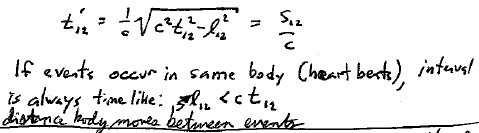 t'₁₂ = 1/c √(c²t₁₂² - l₁₂²) = S₁₂/c
If events occur in same body (heart beats), interval
is always time like: l₁₂ < c t₁₂
distance body moves between events